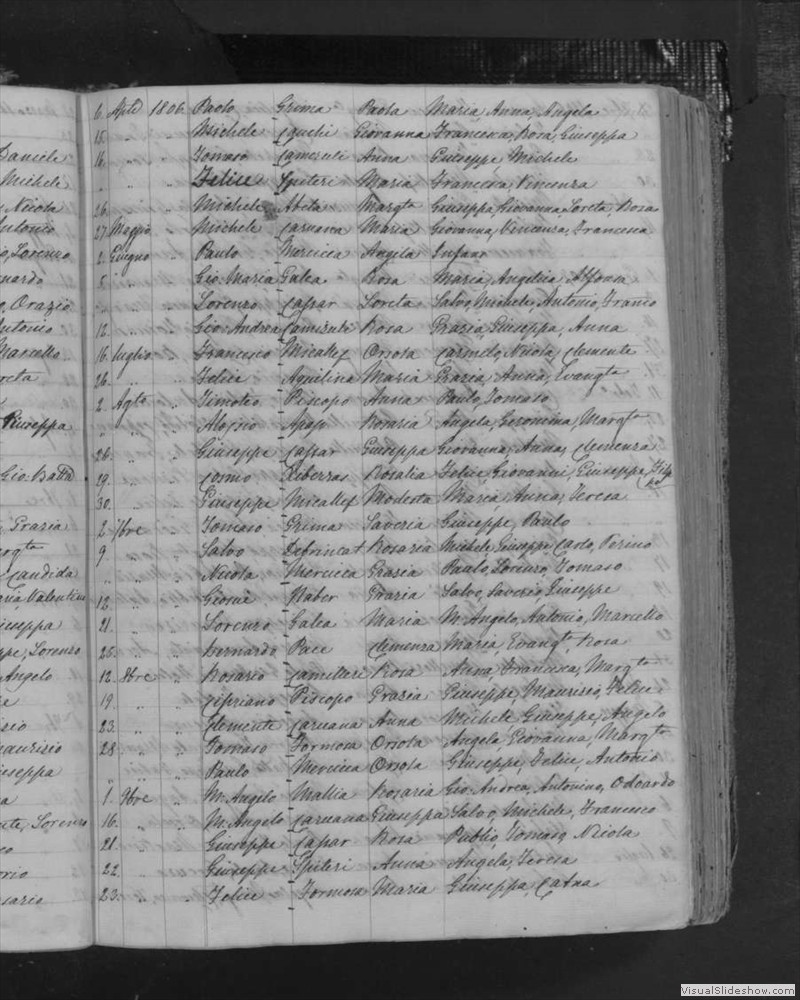 Daniele
Michele
Nicola
Antonio
Lorenzo
Orazio
Antonio
Marcello
Giuseppa
Gio: Batta
Grazia
Candida
Valentino
Lorenzo
Angelo
Maurizio
Lorenzo
6. Aple 1806 Paolo Grima Paola Maria Anna, Angela
15. " " Michele Giovanna Francesca, Rosa, Giuseppa
16. " " Tomaso Camenzuli Anna Giuseppe, Michele
" " " Felice Spiteri Maria Francesca, Vincenza
26. " " Michele Abela Margta Giuseppa, Giovanna, Loreta, Rosa
27. Maggio " Michele Caruana Maria Giovanna, Vincenza, Francesca
2. Giugno " Paulo Mercieca Angela
5. " " Gio: Maria Galea Rosa Maria, Angelica, Alfonsa
" " " Lorenzo Cassar Loreta Salvo, Michele, Antonio, Franco
12. " " Gio: Andrea Camenzuli Rosa Grazia, Giuseppa, Anna
16. Luglio " Francesco Micallef Orsola Carmelo, Nicola, Clemente
26. " " Felice Aquilina Maria Grazia, Anna, Evangta
2. Agto " Timoteo Piscopo Anna Paulo, Tomaso
" " " Aloisio Apap Rosaria Angela, Geronima, Margta
26. " " Giuseppe Cassar Giuseppa Giovanna, Anna, Clemenza
29. " " Cosmo Xiberras Rosalia Felice, Giovanni, Giuseppa
30. " " Giuseppe Micallef Modesta Maria, Anna, Teresa
2. 7bre " Tomaso Grima Saveria Giuseppe, Paulo
9. " " Salvo Debrincat Rosaria Michele, Giuseppe, Carlo, Perino
" " " Nicola Mercieca Grazia Paulo, Lorenzo, Tomaso
12. " " Giosuè Naber Grazia Salvo, Saverio, Giuseppe
21. " " Lorenzo Galea Maria M: Angelo, Antonio, Marcello
25. " " Bernardo Pace Clemenza Maria, Evangta, Rosa
12. 8bre " Rosario Camilleri Rosa Anna, Francesca, Margta
19. " " Cipriano Piscopo Grazia Giuseppe, Maurizio, Felice
23. " " Clemente Caruana Anna Michele, Giuseppe, Angelo
28. " " Tomaso Formosa Orsola Angela, Giovanna, Margta
" " " Paulo Mercieca Orsola Giuseppe, Felice, Antonio
1. 9bre " M: Angelo Mallia Rosaria Gio: Andrea, Antonino, Odoardo
16. " " M: Angelo Caruana Giuseppa Salvo, Michele, Francesco
21. " " Giuseppe Cassar Rosa Publio, Tomaso, Nicola
22. " " Giuseppe Spiteri Anna Angela, Teresa
23. " " Felice Formosa Maria Giuseppa, Catna
VisualSlideshow.com